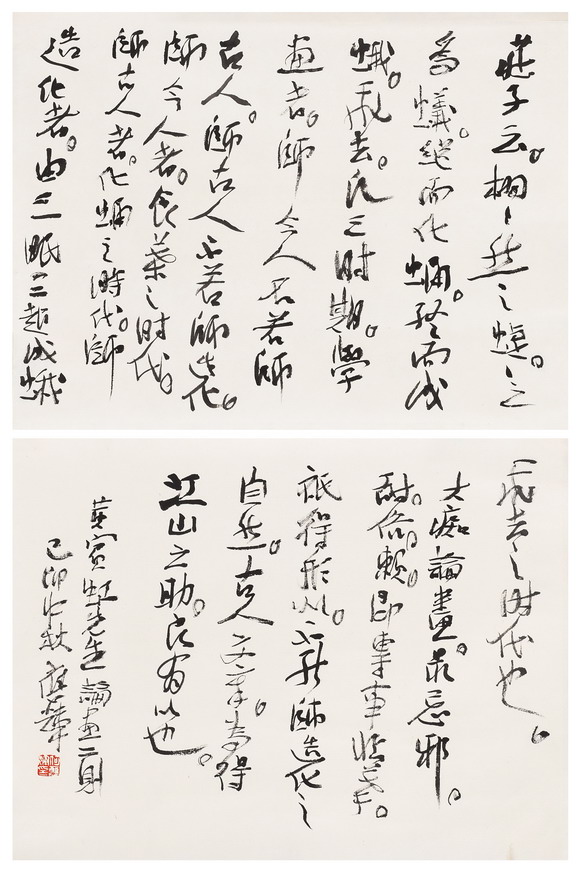 莊子云。栩〻然之蝶。〻之
為蟻。継而化蛹。終而成
蛾。飛去。凡三时期。學
畫者。師今人不若師
古人。師古人不若師造化。
師今人者。食葉之时代。
師古人者。化蛹之时代。師
造化者。由三眠三起成蛾
飛去之时代也。
大癡論畫。最忌邪
甜。俗。賴。即專事臨摹。
祇得形似。不能師造化之
自然。古人文章。夸得
江山之助。良有以也。
黃賓虹先生論畫二則
己卯中秋 應輝